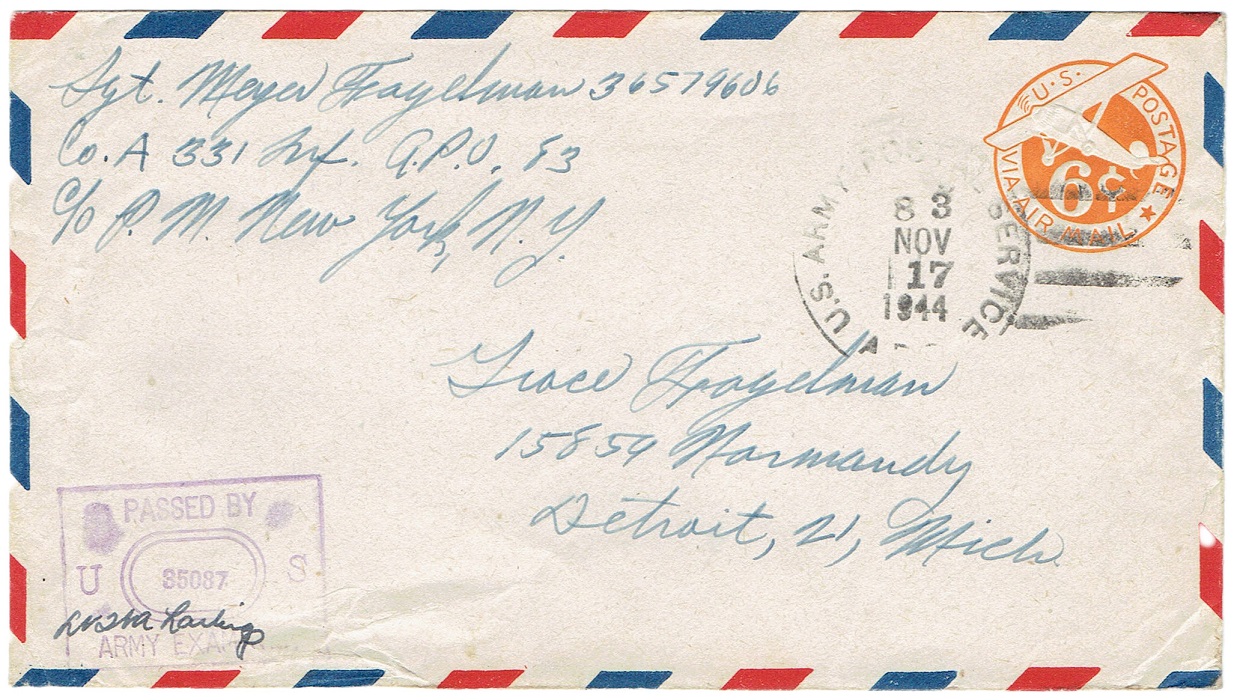 Sgt. Meyer Fragelman 36579606
Co. A 331 Inf. A.P.O. 83
c/o P.M. New York, N.Y.
U.S. POSTAGE
6¢
VIA AIR MAIL
U.S. ARMY POSTAL SERVICE
83
NOV
17
1944
Grace Fragelman
15859 Normandy
Detroit, 21, Mich.
PASSED BY
U 35087 S
ARMY EXA